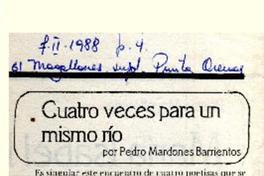 7-II-1988 p. 4.
El Magallanes supl. Punta Arenas
Cuatro veces para un
mismo río
por Pedro Mardones Barrientos
Es singular este encuentro de cuatro poetisas que se